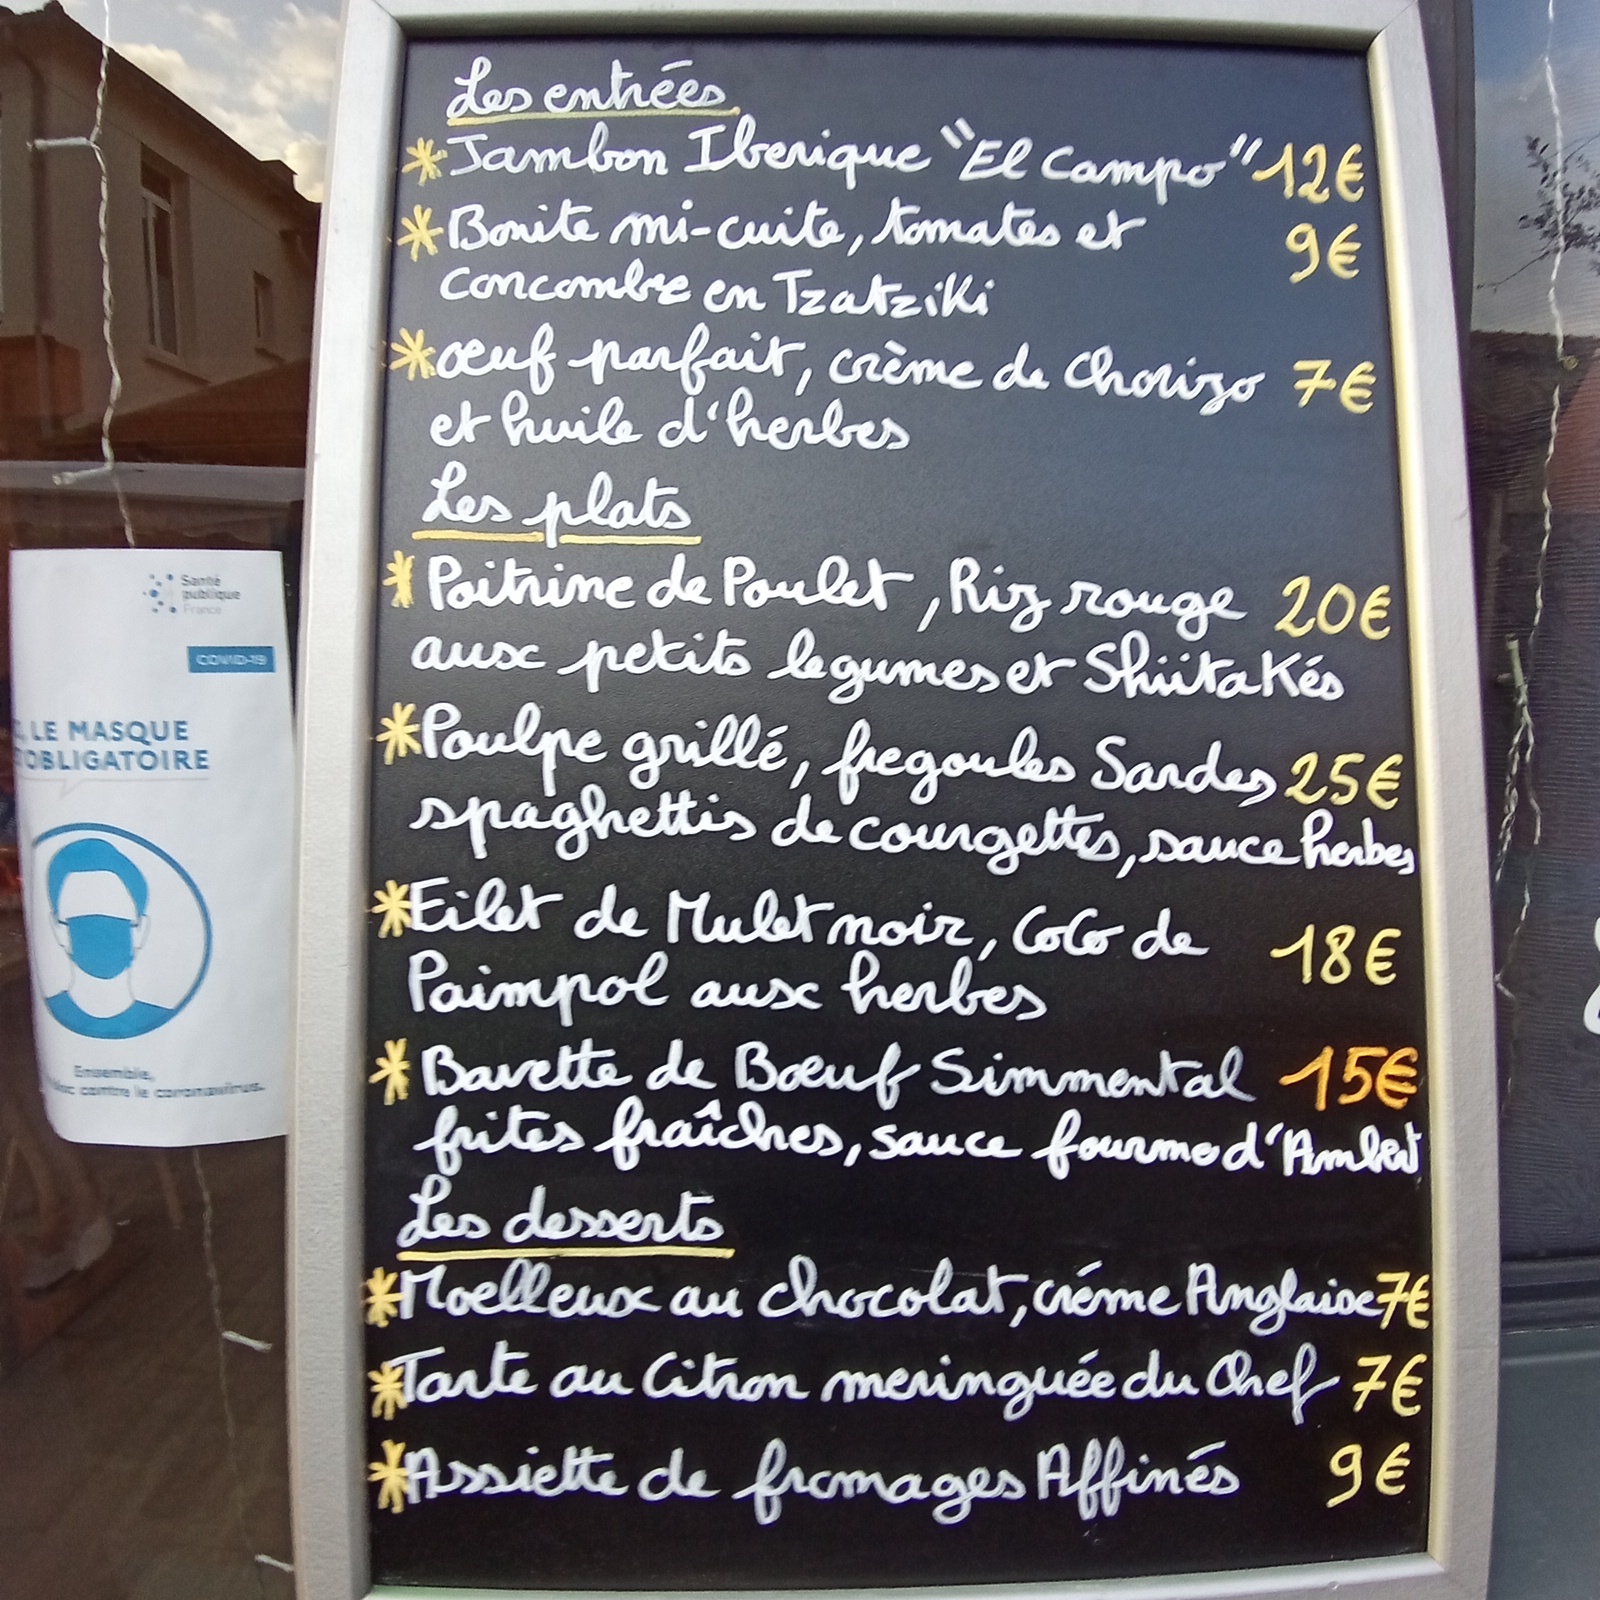 Les entrées
* Jambon Iberique "El Campo" 12€
* Bonite mi-cuite, tomates et 9€
concombre en Tzatziki
* œuf parfait, crème de Chorizo 7€
et huile d'herbes
Les plats
* Poitrine de Poulet, Riz rouge 20€
aux petits legumes et Shiitakés
* Poulpe grillé, fregoules Sardes 25€
spaghettis de courgettes, sauce herbes
* Filet de Mulet noir, CoCo de 18€
Paimpol aux herbes
* Bavette de Bœuf Simmental 15€
frites fraîches, sauce fourme d'Ambert
Les desserts
* Moelleux au chocolat, créme Anglaise 7€
* Tarte au Citron meringuée du Chef 7€
* Assiette de fromages Affinés 9€
Santé
publique
France
COVID-19
, LE MASQUE
OBLIGATOIRE
Ensemble,
contre le coronavirus.